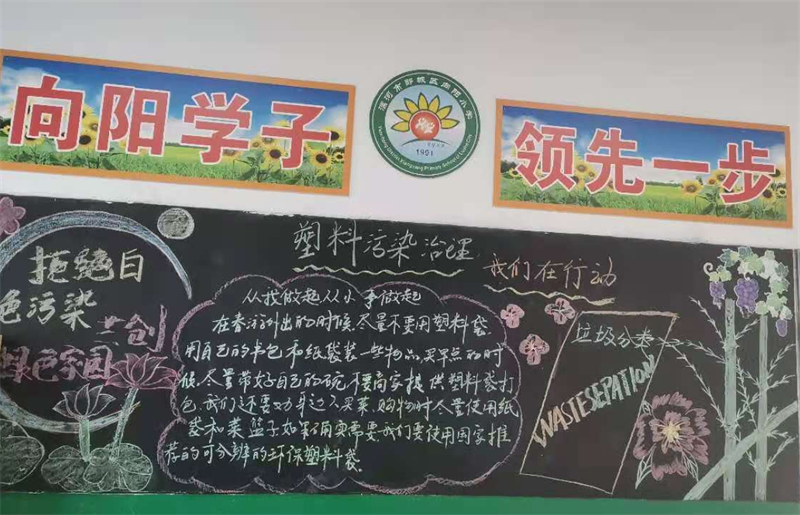 向阳学子
漯河市郾城区向阳小学
1951
领先一步
拒绝白
色污染
共创
绿色家园
塑料污染治理
我们在行动
从我做起从小事做起
在春游外出的时候,尽量不要用塑料袋
用自己的书包和纸袋装一些物品,买早点的时
候,尽量带好自己的碗,不要商家提供塑料袋打
包,我们还要劝身边人买菜,购物时尽量使用纸
袋和菜篮子,如果确实需要我们要使用国家推
荐的可分辨的环保塑料袋
垃圾分类
WASTESEPATION